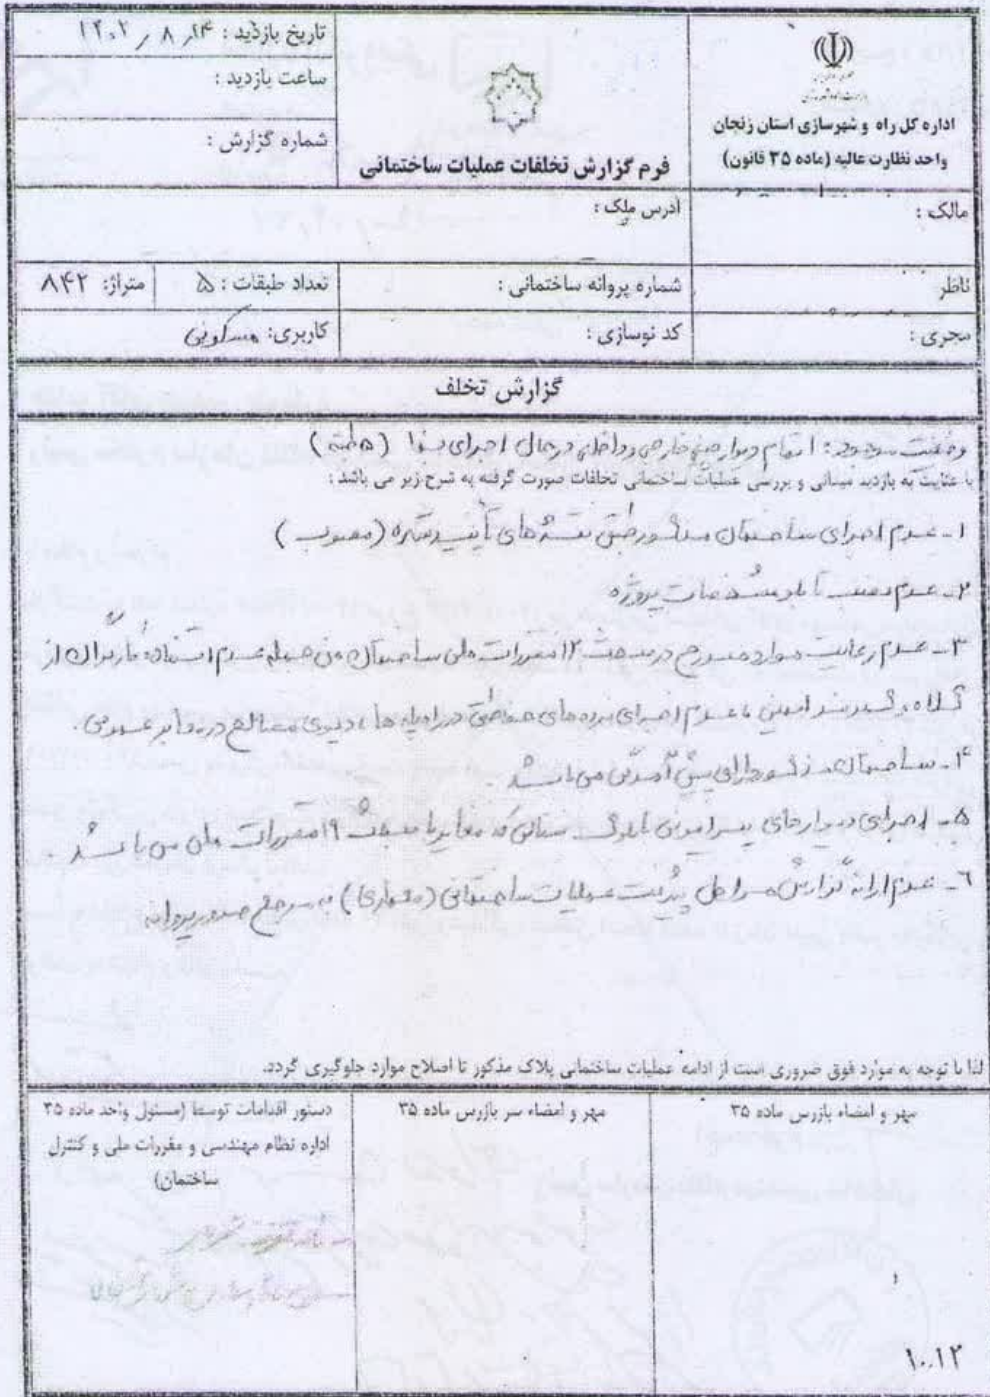 اداره کل راه و شهرسازی استان زنجان
واحد نظارت عالیه (ماده ۳۵ قانون)
فرم گزارش تخلفات عملیات ساختمانی
تاریخ بازدید : ۱۴۰۲/۸/۲۴
ساعت بازدید :
شماره گزارش :
مالک :
آدرس ملک :
ناظر
شماره پروانه ساختمانی :
تعداد طبقات : ۵
متراژ: ۸۴۲
مجری :
کد نوسازی :
کاربری: مسکونی
گزارش تخلف
وضعیت موجود : اتمام دیوار چینی خارجی و داخلی درحال اجرای نما (۵ طبقه)
با عنایت به بازدید میدانی و بررسی عملیات ساختمانی تخلفات صورت گرفته به شرح زیر می باشد :
۱- عدم اجرای ساختمان مذکور طبق نقشه های تأیید شده (مصوب)
۲- عدم نصب تابلو مشخصات پروژه
۳- عدم رعایت موارد مندرج در مبحث ۱۲ مقررات ملی ساختمان من جمله عدم استفاده کارگران از
کلاه و کمربند ایمنی، عدم اجرای نرده های حفاظتی در راه پله ها، دپوی مصالح در معابر عمومی.
۴- ساختمان مذکور دارای پیش آمدگی می باشد.
۵- اجرای دیوارهای پیرامونی با بلوک سفالی که مغایر با مبحث ۱۹ مقررات ملی می باشد.
۶- عدم ارائه گزارش مراحل پیشرفت عملیات ساختمانی (معماری) به مرجع صدور پروانه
لذا با توجه به موارد فوق ضروری است از ادامه عملیات ساختمانی پلاک مذکور تا اصلاح موارد جلوگیری گردد.
مهر و امضاء بازرس ماده ۳۵
مهر و امضاء سر بازرس ماده ۳۵
دستور اقدامات توسط (مسئول واحد ماده ۳۵
اداره نظام مهندسی و مقررات ملی و کنترل
ساختمان)
۱۰.۱۲